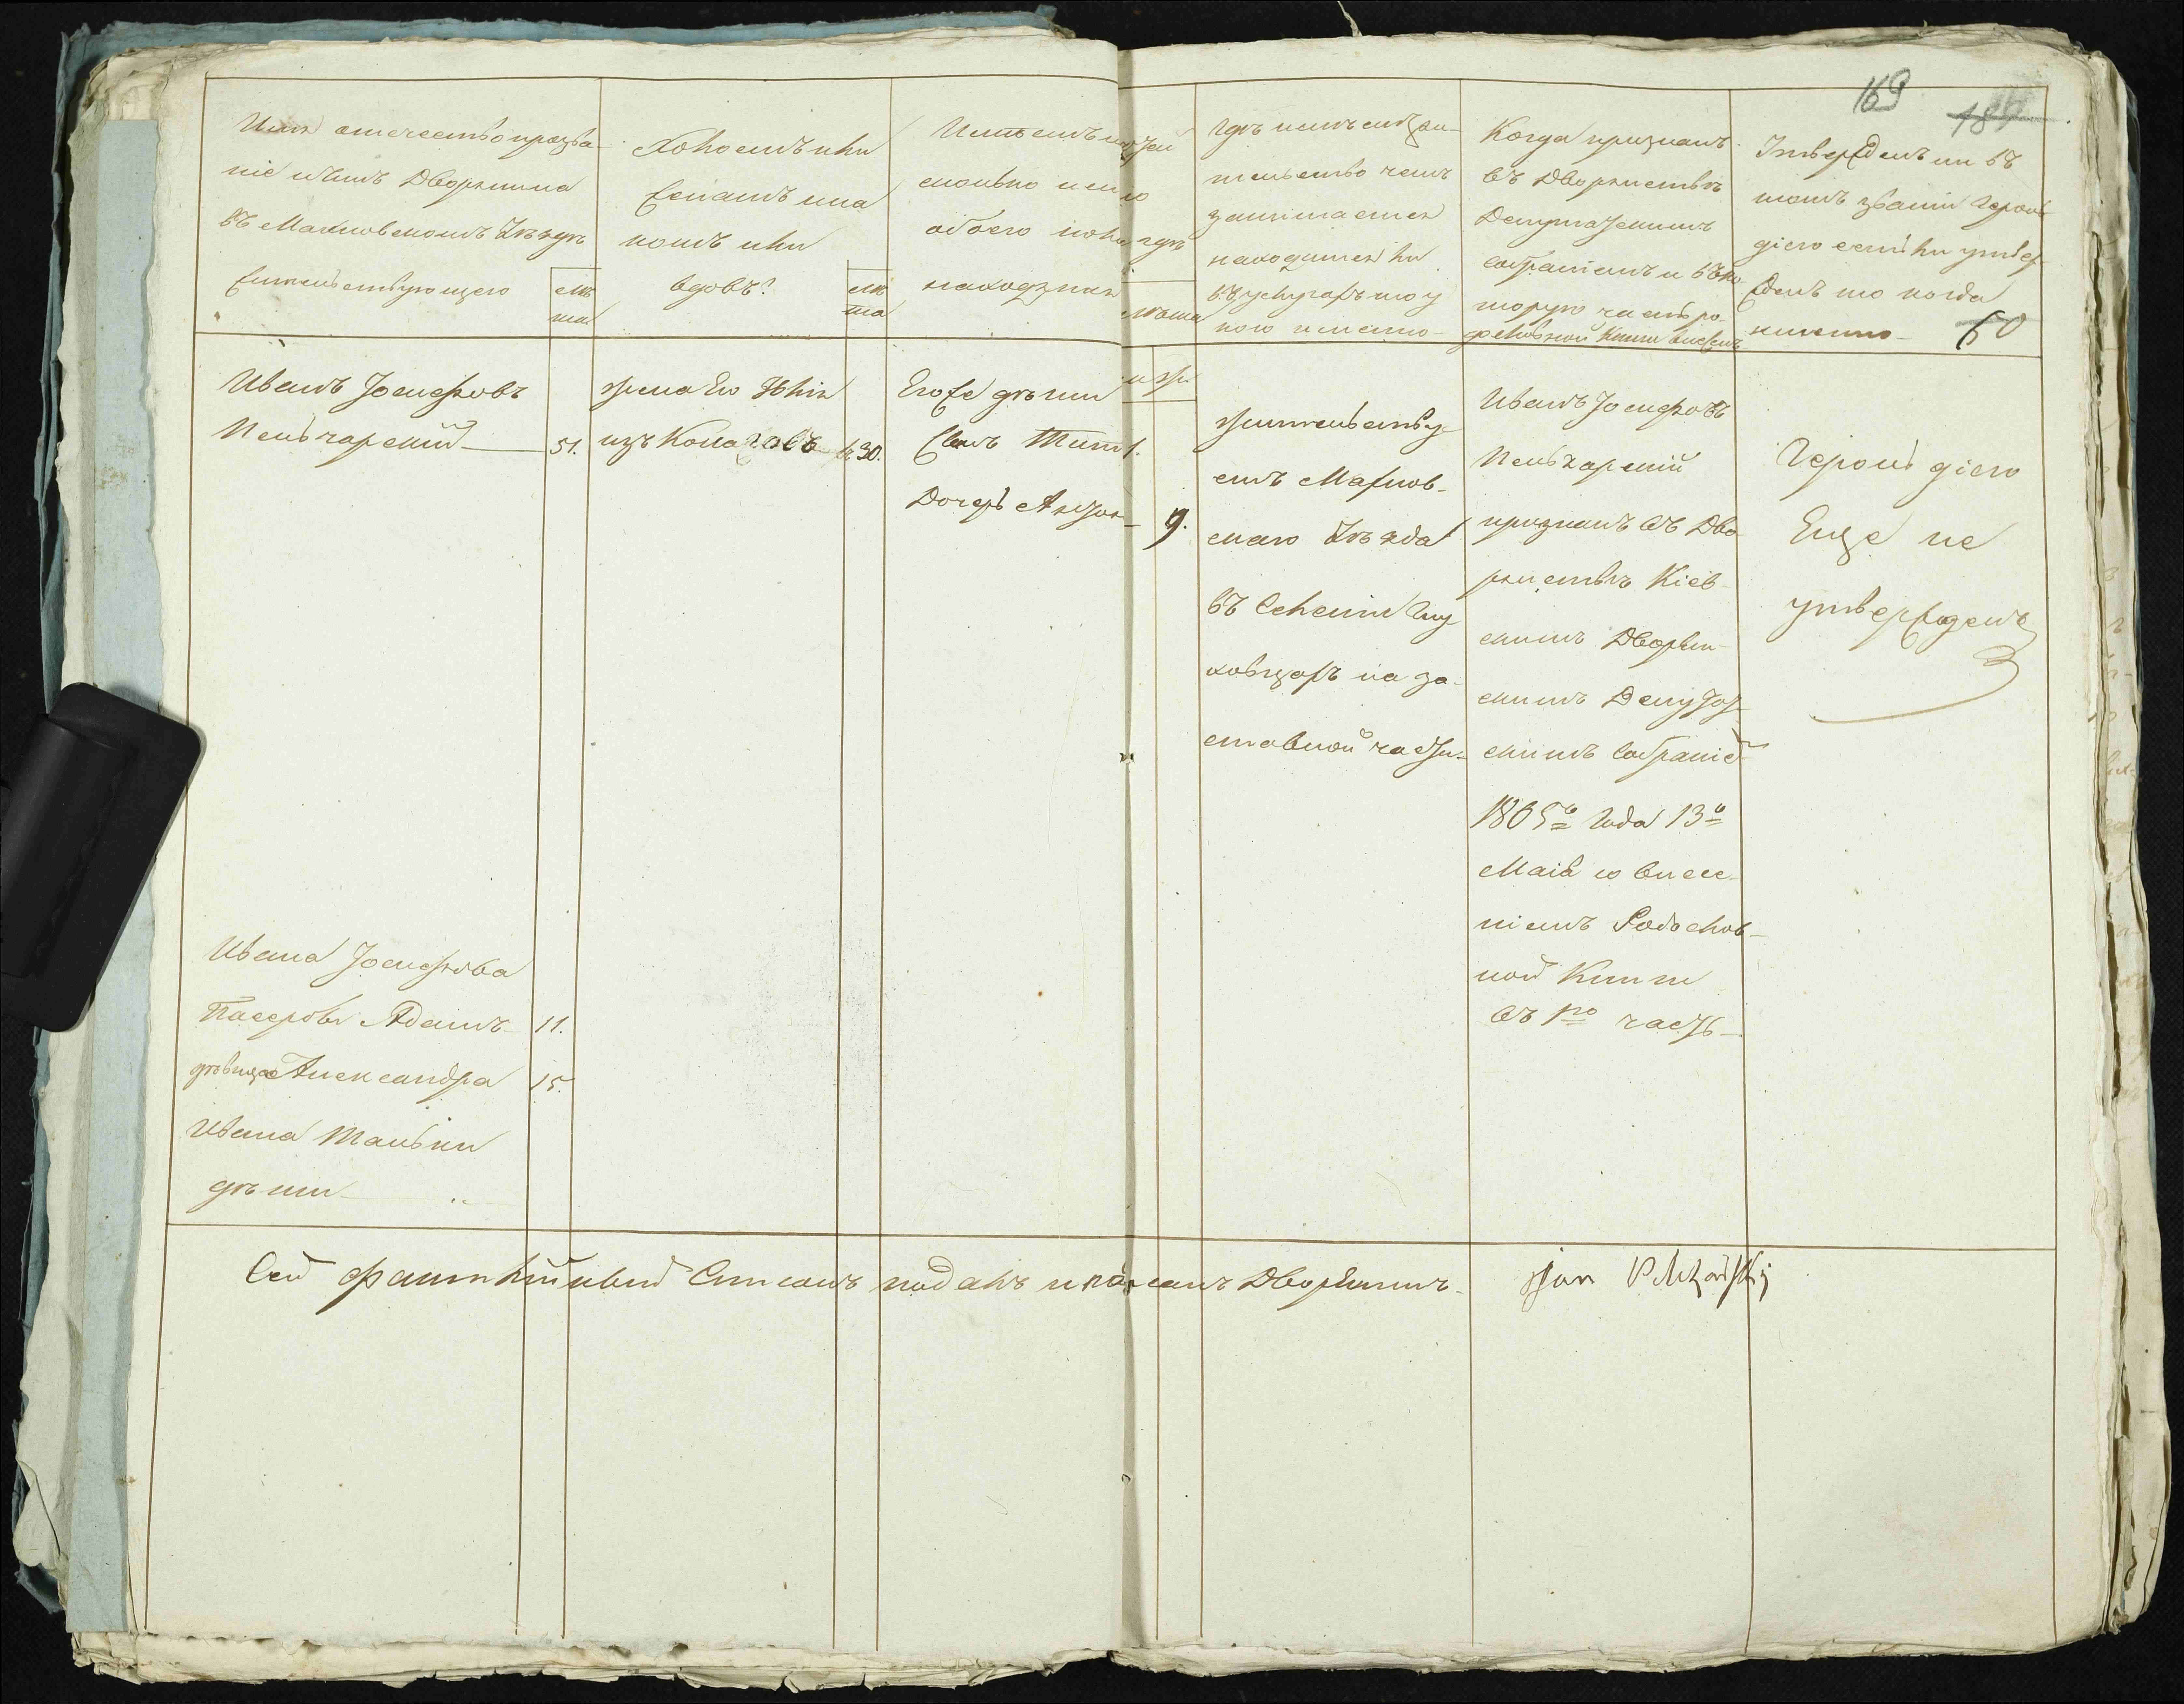 169
187
Имя отечество прозва
ніе и летъ Дворянина
въ Махновскомъ Уѣздѣ
жительствующего
лѣ
та
Холостъ или
женатъ и на
комъ или
вдовъ?
лѣ
та
Имѣетъ ли детей
сколько и кого
обоего пола и где
находятся
лѣта
м. ж.
Гдѣ имѣетъ жи-
тельство чемъ
занимается
находится ли
въ услугахъ и у
кого именно-
Когда признанъ
въ Дворянствѣ
Депутатскимъ
собраніемъ и въ ко
торую часть ро-
дословной Книги внесенъ
Утвержденъ ли въ
томъ званіи Героль
діею если утвер
жденъ то когда
именно-
60
Иванъ Іосифовъ
Пельчарскій 51.
жена Его Юлія
изъ 30.
Его же дѣти
Сынъ Титъ 1.
Дочерь 9.
Жительству
етъ Махнов-
скаго Уѣзда
въ Селеніи Глу
ховцахъ на за-
ставной части.
Иванъ Іосифовъ
Пельчарскій
признанъ въ Дво
рянствѣ Кіев-
скимъ Дворян-
скимъ Депутат
скимъ Собраніе
1805го Года 13го
Маія со внесе-
ніемъ Родослов-
ной Книги
въ 1ю часть
Герольдіею
Еще не
утвержденъ
Ивана Іосифова
Пасербы Адамъ 11.
дѣвица Александра 15.
Ивана
дѣти
Сей фамилійный Списокъ подалъ и Дворянинъ
Jan Pelczarski